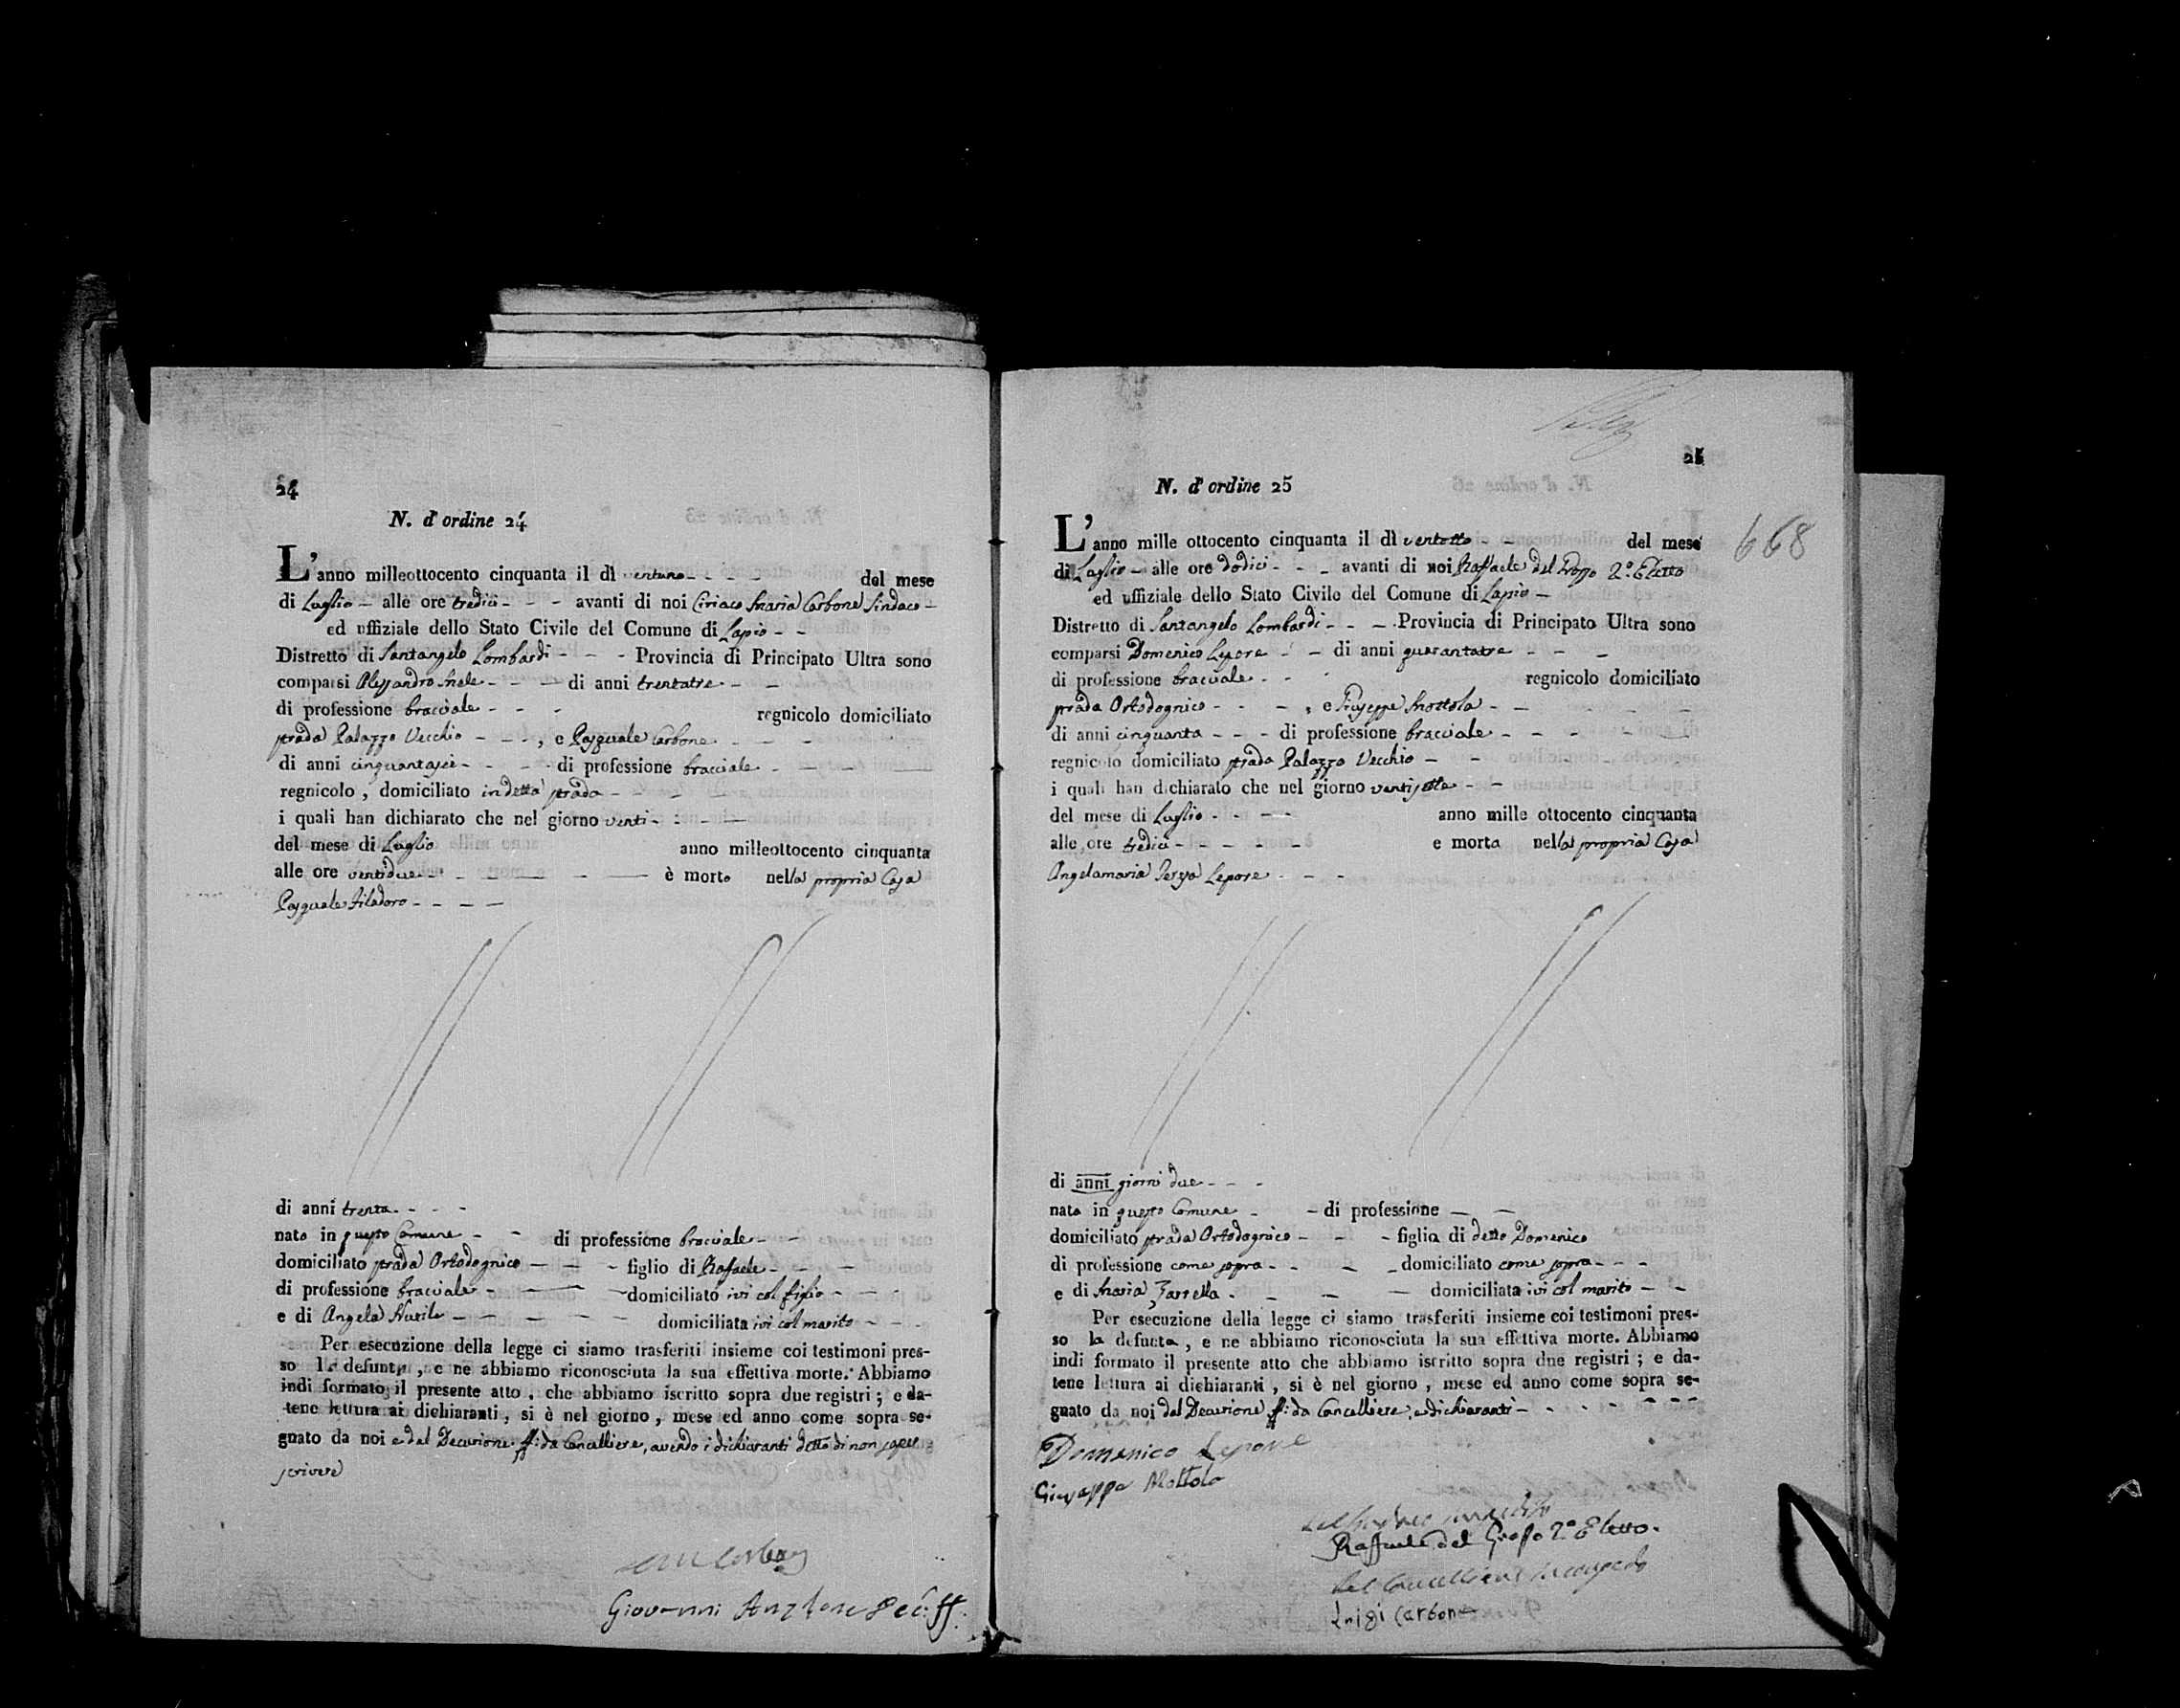 24
N. d'ordine 24
L'anno milleottocento cinquanta il dì ventuno - - - - del mese
di Luglio - alle ore tredici - - - avanti di noi Ciriaco Maria Carbone Sindaco -
ed uffiziale dello Stato Civile del Comune di Lapio - -
Distretto di Santangelo Lombardi - - - Provincia di Principato Ultra sono
comparsi Alessandro Mele - - - di anni trentatre - -
di professione bracciale - - - regnicolo domiciliato
strada Palazzo Vecchio - - - , e Pasquale Carbone - - -
di anni cinquantasei - - - - di professione bracciale - - - -
regnicolo , domiciliato in detta strada - - - -
i quali han dichiarato che nel giorno venti - - - -
del mese di Luglio anno milleottocento cinquanta
alle ore ventidue - - - - - è morto nella propria Casa
Pasquale Filadoro - - - -
di anni trenta - - - -
nato in questo Comune - - di professione bracciale - -
domiciliato strada Ortodognico - - - figlio di Raffaele - - -
di professione bracciale - - - domiciliato ivi col figlio - - -
e di Angela - - - - - domiciliata ivi col marito - - -
Per esecuzione della legge ci siamo trasferiti insieme coi testimoni pres-
so lo defunto , e ne abbiamo riconosciuta la sua effettiva morte. Abbiamo
indi formato il presente atto , che abbiamo iscritto sopra due registri ; e da-
tene lettura ai dichiaranti , si è nel giorno , mese ed anno come sopra se-
gnato da noi e dal Decurione ff: da Cancelliere, avendo i dichiaranti detto di non saper
scrivere
Giovanni Anzalone Dec: ff.
25
N. d'ordine 25
668
L'anno mille ottocento cinquanta il dì ventotto - - del mese
di Luglio - alle ore dodici - - - avanti di noi Raffaele del Grosso 2.º Eletto
ed uffiziale dello Stato Civile del Comune di Lapio -
Distretto di Santangelo Lombardi - - - Provincia di Principato Ultra sono
comparsi Domenico Lepore - - di anni quarantatre - - -
di professione bracciale - - - regnicolo domiciliato
strada Ortodognico - - - , e Giuseppe Mottola - - - - -
di anni cinquanta - - - di professione bracciale - - - - -
regnicolo domiciliato strada Palazzo Vecchio - - -
i quali han dichiarato che nel giorno ventisette - -
del mese di Luglio - - - - anno mille ottocento cinquanta
alle ore tredici - - - - - e morta nella propria Casa
Angelamaria Teresa Lepore - - -
di anni giorni due - - -
nata in questo Comune - - di professione - -
domiciliato strada Ortodognico - - - figlia di detto Domenico
di professione come sopra - - - - domiciliato come sopra - - -
e di Maria Zarrella - - - - domiciliata ivi col marito - -
Per esecuzione della legge ci siamo trasferiti insieme coi testimoni pres-
so la defunta , e ne abbiamo riconosciuta la sua effettiva morte. Abbiamo
indi formato il presente atto che abbiamo iscritto sopra due registri ; e da-
tene lettura ai dichiaranti , si è nel giorno , mese ed anno come sopra se-
gnato da noi dal Decurione ff: da Cancelliere, e dichiaranti - - - - - - -
Domenico Lepore
Giuseppe Mottola
Raffaele del Grosso 2.º Eletto.
Pel Cancelliere
Luigi Carbone